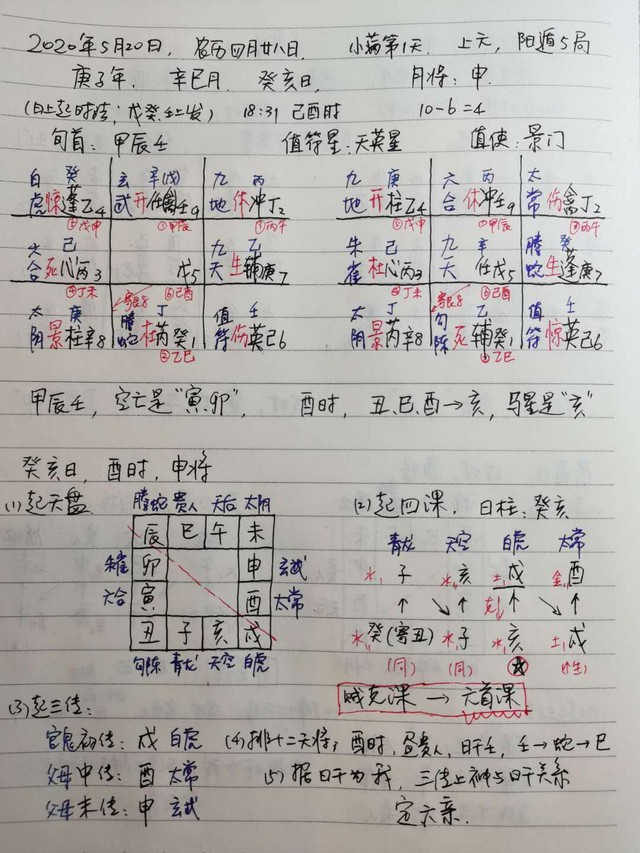 2020年5月20日, 农历四月廿八日. 小满第1天. 上元, 阳遁5局
庚子年. 辛巳月. 癸亥日, 月将: 申.
(日上起时法; 戊癸壬上发) 18:31 己酉时 10-6=4
旬首: 甲辰壬 值符星: 天英星 值使: 景门
白 癸 玄 辛(戊) 九 丙 九 庚 六 丙 太
虎惊蓬乙4 武开任禽壬9 地休冲丁2 地开柱乙4 合休冲壬9 常伤禽丁2
⑤戊申 ①甲辰 ③丙午 ⑤戊申 ①甲辰 ③丙午
六 己 九 乙 朱 己 九 辛 螣 癸
合死心丙3 戊5 天生辅庚7 雀杜心丙3 天任戊5 蛇生蓬庚7
④丁未 寄艮8 ⑥己酉 ④丁未 寄艮8 ⑥己酉
太 庚 螣 丁 值 壬 太 丁 勾 乙 值 壬
阴景柱辛8 蛇杜芮癸1 符伤英己6 阴景芮辛8 陈死辅癸1 符惊英己6
②乙巳 ②乙巳
甲辰壬, 空亡是"寅.卯", 酉时, 丑.巳.酉→亥, 马星是"亥"
癸亥日, 酉时, 申将
(1)起天盘 螣蛇 贵人 天后 太阴 (2)起四课, 日柱: 癸亥
辰 巳 午 未 青龙 天空 白虎 太常
朱雀 卯 申 玄武 水 子 水 亥 土 戌 金 酉
六合 寅 酉 太常 ↑ ↘↑ 克 ↑ ↘↑
丑 子 亥 戌 水 癸(寄丑) 水 子 水 亥 土 戌
勾陈 青龙 天空 白虎 (同) (同) (生)
(3)起三传: 贼克课 → 元首课
官鬼初传: 戌 白虎 (4)排十二天将; 酉时, 昼贵人, 日干壬, 壬→蛇→巳
父母中传: 酉 太常 (5)据日干为我, 三传上神与日干关系
父母末传: 申 玄武 定六亲.